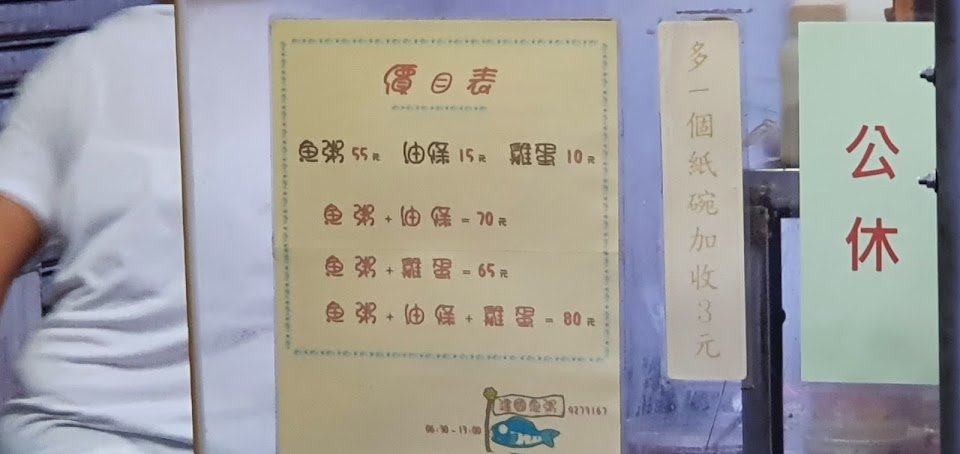 價目表
魚粥 55元 油條 15元 雞蛋 10元
魚粥 + 油條 = 70元
魚粥 + 雞蛋 = 65元
魚粥 + 油條 + 雞蛋 = 80元
建國魚粥
9279167
06:30 - 19:00
多一個紙碗加收3元
公休